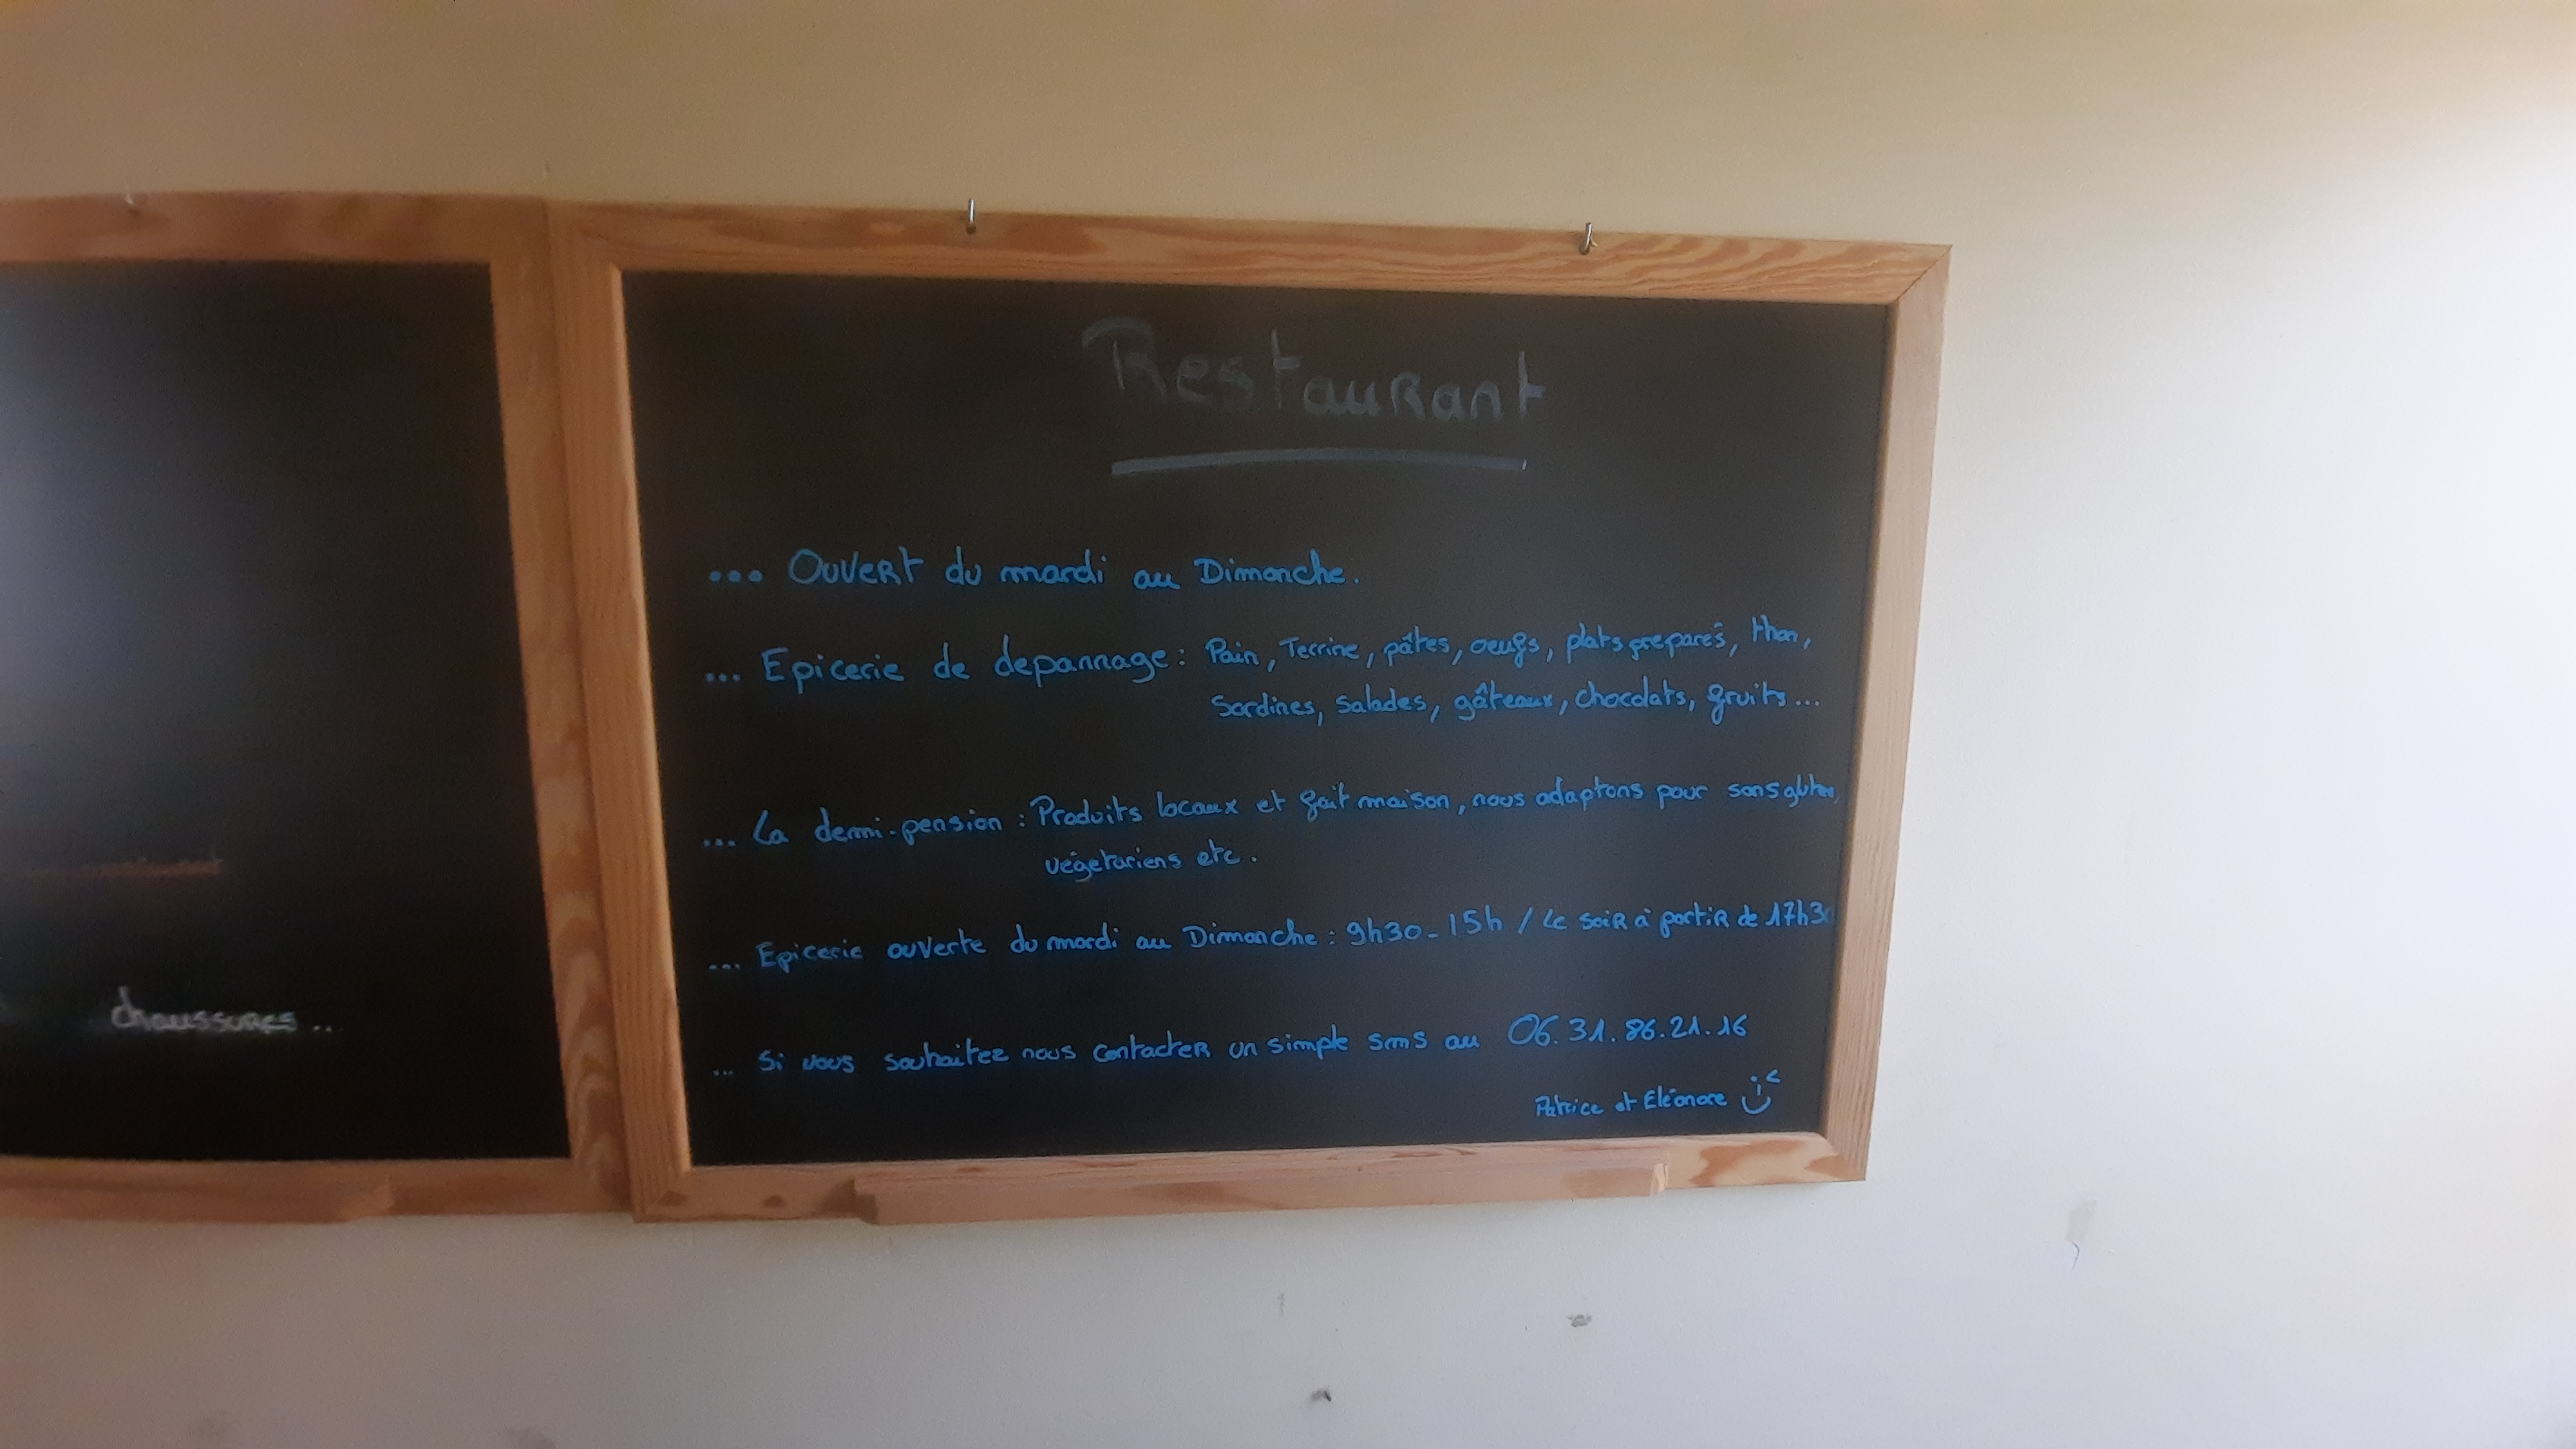 Restaurant
... Ouvert du mardi au Dimanche.
... Epicerie de depannage : Pain, Terrine, pâtes, oeufs, plats preparés, thon,
Sardines, salades, gâteaux, chocolats, fruits...
... La demi-pension : Produits locaux et fait maison, nous adaptons pour sans gluten,
végetariens etc.
... Epicerie ouverte du mardi au Dimanche : 9h30-15h / Le soir à partir de 17h30
... Si vous souhaitez nous contacter un simple sms au 06.31.86.21.16
Patrice et Eléonore
chaussures...